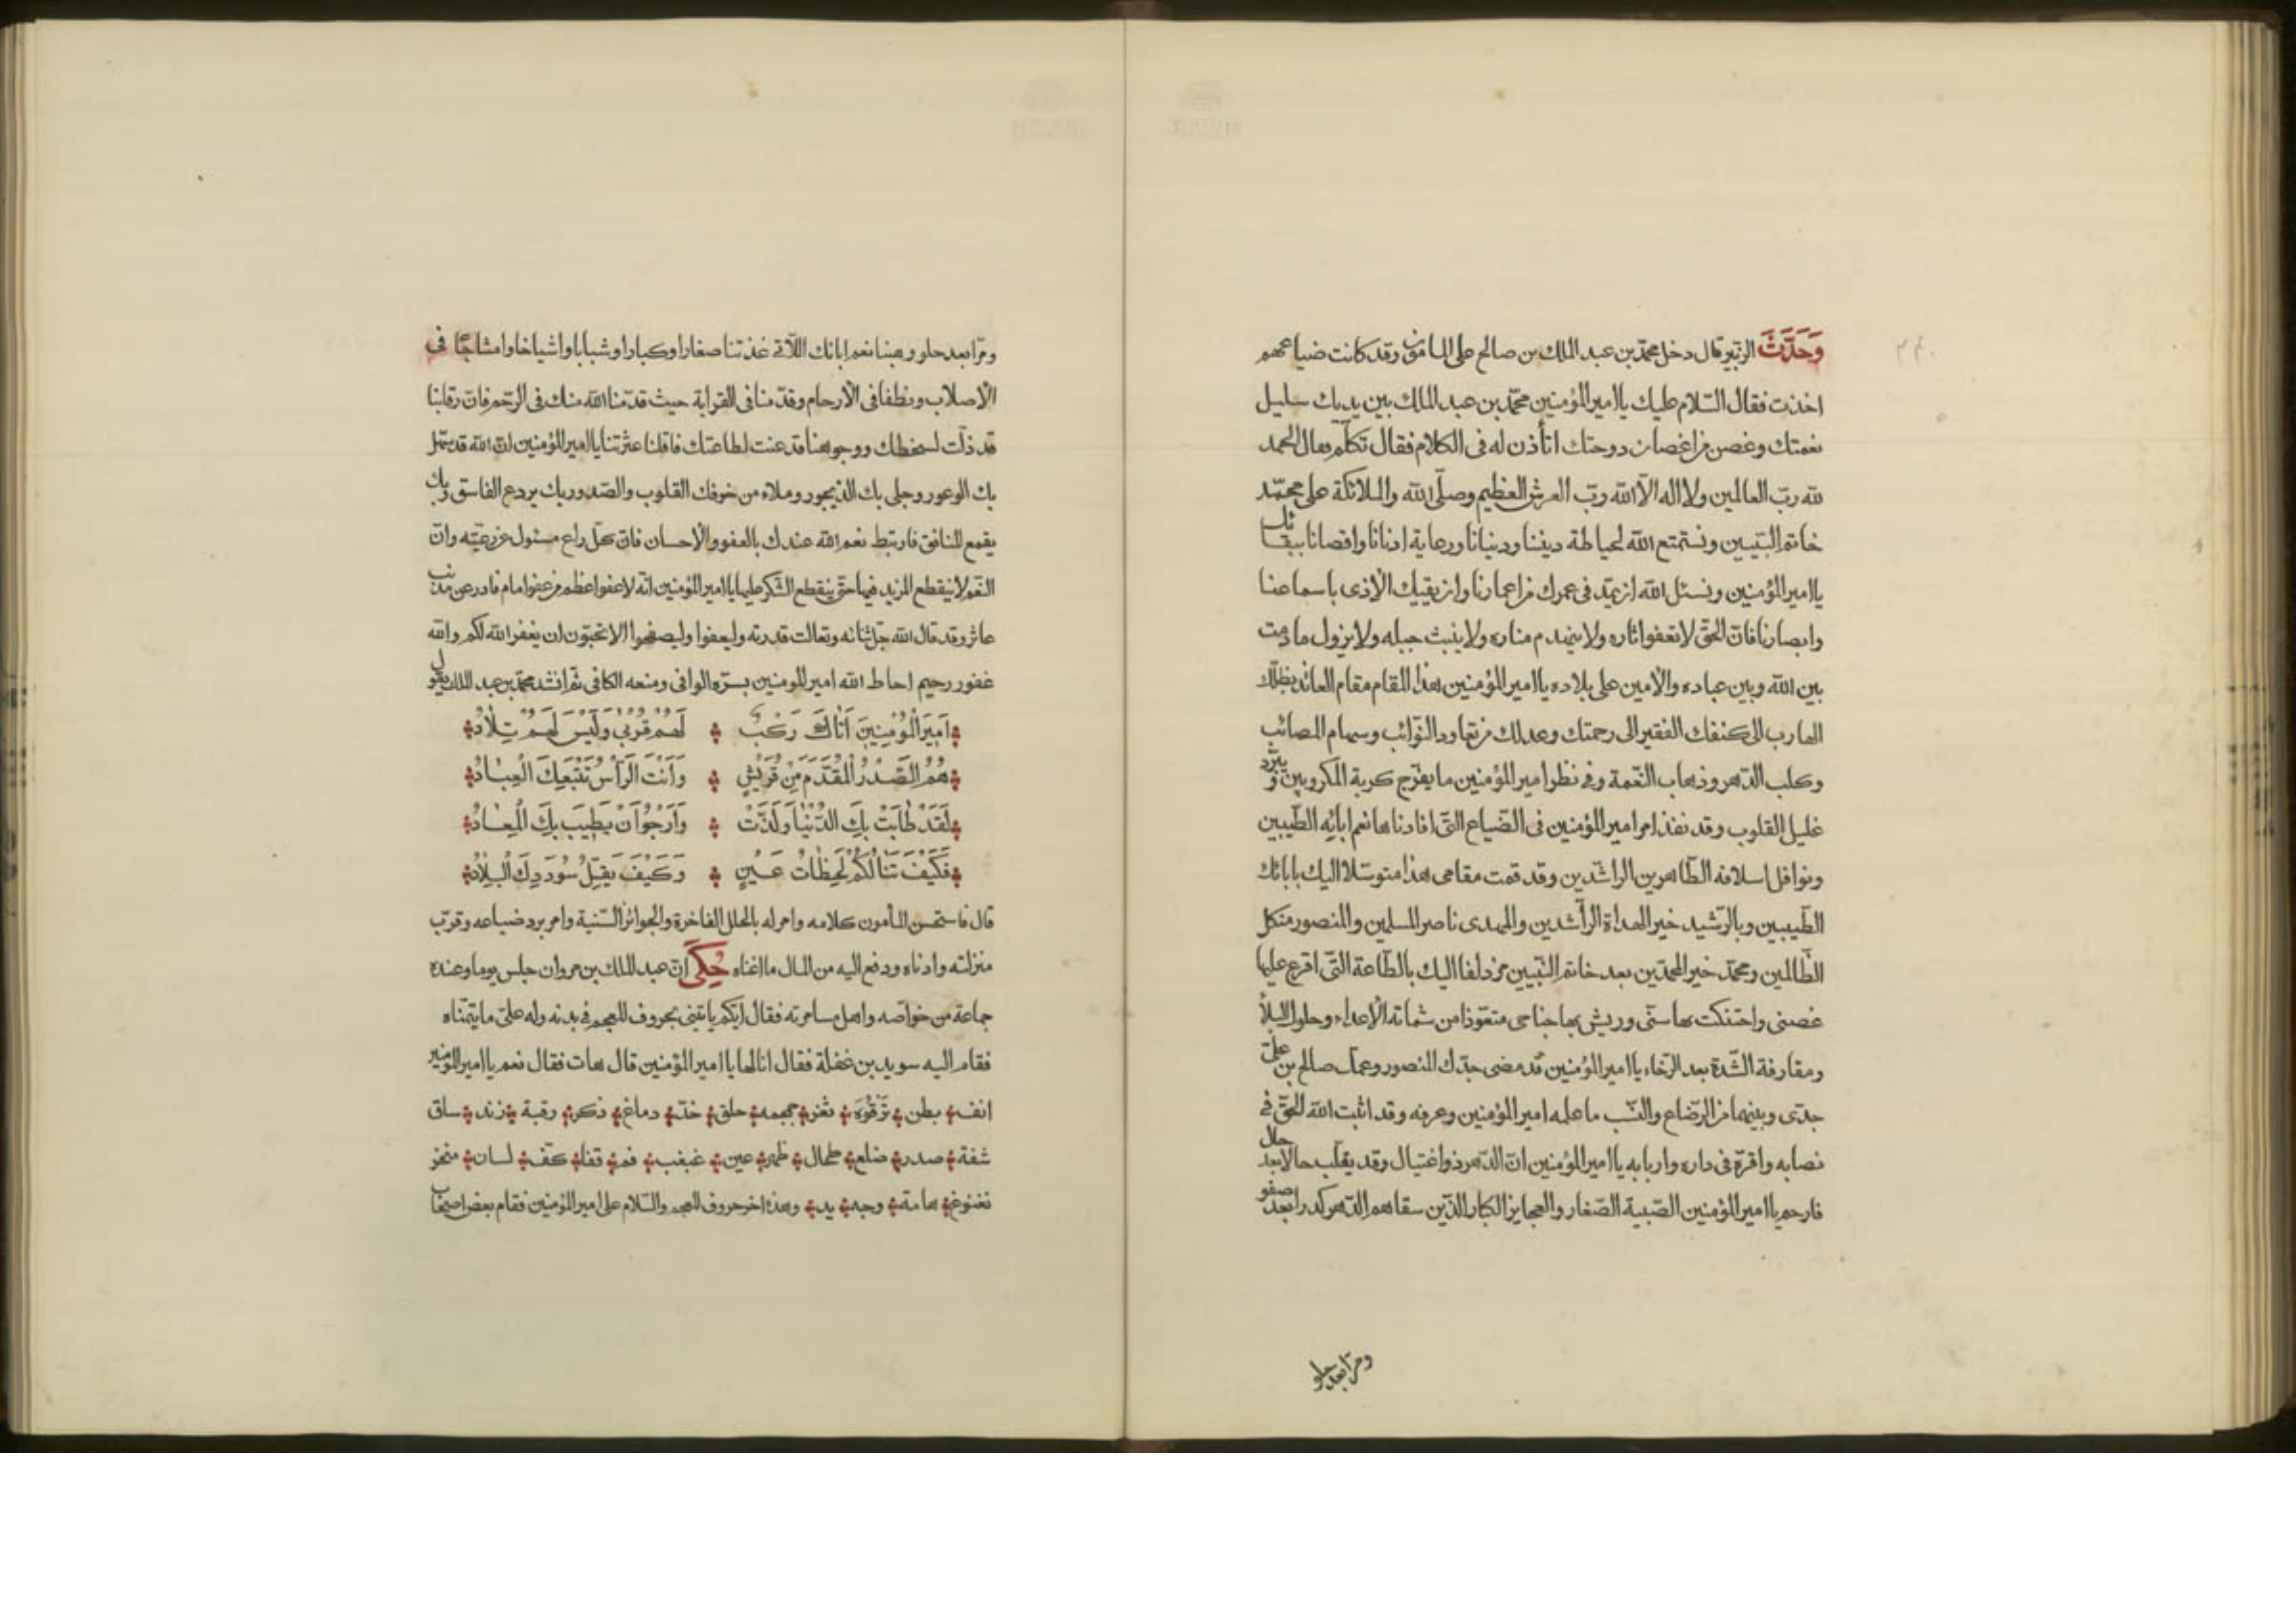 وَحَدَّثَ الزبير قال دخل محمد بن عبد الملك بن صالح على المامون وقد كانت ضياعهم
اخذت فقال السّلام عليك يا امير المؤمنين محمّد بن عبد الملك بين يديك سليل
نعمتك وغصن من اغصان دوحتك اتأذن له فى الكلام فقال تكلّم فقال الحمد
لله ربّ العالمين ولا اله الّا الله ربّ العرش العظيم وصلّى الله والملائكة على محمّد
خاتم النبيّين ونستمتع الله لحياطة ديننا ودنيانا ورعاية ادنانا واقصانا ببقائك
يا امير المؤمنين ونسئل الله ان يمدّ فى عمرك من اعمارنا وان يقيك الاذى باسماعنا
وابصارنا فانّ الحقّ لا تعفو اثاره ولا ينهدم مناره ولا ينبث حبله ولا يزول ما دمت
بين الله وبين عباده والامين على بلاده يا امير المؤمنين هذا المقام مقام العائذ بظلّك
الهارب الى كنفك الفقير الى رحمتك وعدلك من تعاود النّوائب وسهام المصائب
وكلب الدّهر وذهاب النّعمة وفى نظر امير المؤمنين ما يفرّج كربة المكروبين ويبرّد
غليل القلوب وقد نفذ امر امير المؤمنين فى الضّياع التّى افادناها نعم ابائه الطّيبين
ونوافل اسلافه الطّاهرين الراشدين وقد قمت مقامى هذا متوسّلا اليك بابائك
الطّيبين وبالرّشيد خير الهداة الرّاشدين والمهدى ناصر المسلمين والمنصور منكل
الظّالمين ومحمّد خير المحمّدين بعد خاتم النّبيين مزدلفا اليك بالطّاعة التّى افرع عليها
غصنى واحتنكت بها سنّى وريش بها جناحى متعوّذا من شماتة الاعداء وحلول البلاء
ومقارفة الشّدّة بعد الرّخاء يا امير المؤمنين قد مضى جدّك المنصور وعمك صالح بن علىّ
جدّى وبينهما من الرّضاع والنّسب ما علمه امير المؤمنين وعرفه وقد اثبت الله الحقّ فى
نصابه واقرّه فى داره واربابه يا امير المؤمنين انّ الدّهر ذو اغتيال وقد يقلّب حالا بعد حال
فارحم يا امير المؤمنين الصّبية الصّغار والعجايز الكبار الذّين سقاهم الدّهر كدرا بعد صفو
ومرّا بعد حلو
ومرّا بعد حلو وهبنا نعم ابائك اللّاتى غذتنا صغارا وكبارا وشبابا واشياخا وامشاجًا فى
الاصلاب ونطفا فى الارحام وقدّمنا فى القرابة حيث قدّمنا الله منك فى الرّحم فانّ رقابنا
قد ذلّت لسخطك ووجوهنا قد عنت لطاعتك فاقلنا عثرتنا يا امير المؤمنين انّ الله قد سهّل
بك الوعور وجلى بك الديجور وملاء من خوفك القلوب والصّدور بك يردع الفاسق وبك
يقمع المنافق فارتبط نعم الله عندك بالعفو والاحسان فانّ كلّ راع مسئول عن رعيّته وانّ
النّعم لا ينقطع المزيد فيها حتّى ينقطع الشّكر عليها يا امير المؤمنين انّه لا عفو اعظم من عفو امام قادر عن مذنب
عاثر وقد قال الله جلّ ثنائه وتعالت قدرته وليعفوا وليصفحوا الا تحبّون ان يغفر الله لكم والله
غفور رحيم احاط الله امير المومنين بستره الوافى ومنعه الكافى ثم انشد محمّد بن عبد الملك يقول
اَمِيرَ الْمُؤْمِنِينَ اَتَاكَ رَكْبٌ لَهُمْ قُرْبٰى وَلَيْسَ لَهُمْ تِلَادُ
هُمُ الصَّدْرُ الْمُقَدَّمُ مِنْ قُرَيْشٍ وَاَنْتَ الرَّأْسُ تَتْبَعُكَ الْعِبَادُ
لَقَدْ طَابَتْ بِكَ الدُّنْيَا وَلَذَّتْ وَاَرْجُوْ اَنْ يَطِيبَ بِكَ الْمَعَادُ
فَكَيْفَ تَنَالُكُمْ لَحَظَاتُ عَيْنٍ وَكَيْفَ يَقِلُّ سُودَدِكَ الْبِلَادُ
قال فاستحسن المأمون كلامه وامر له بالحلل الفاخرة والجوائز السّنية وامر برد ضياعه وقرّب
منزلته وادناه ودفع اليه من المال ما اغناه حُكِىَ انّ عبد الملك بن مروان جلس يوما وعنده
جماعة من خواصّه واهل مسامرته فقال ايّكم ياتينى بحروف المعجم فى بدنه وله علىّ ما يتمنّاه
فقام اليه سويد بن غفلة فقال انا لها يا امير المؤمنين قال هات فقال نعم يا امير المؤمنين
انف بطن تَرْقُوَة ثغر جمجمه حلق خدّ دماغ ذكر رقبة زند ساق
شفة صدر ضلع طحال ظهر عين غبغب فم قفا كفّ لسان منخر
نغنوغ هامة وجه يد وهذه اخر حروف المعجم والسّلام على امير المؤمنين فقام بعض اصحاب